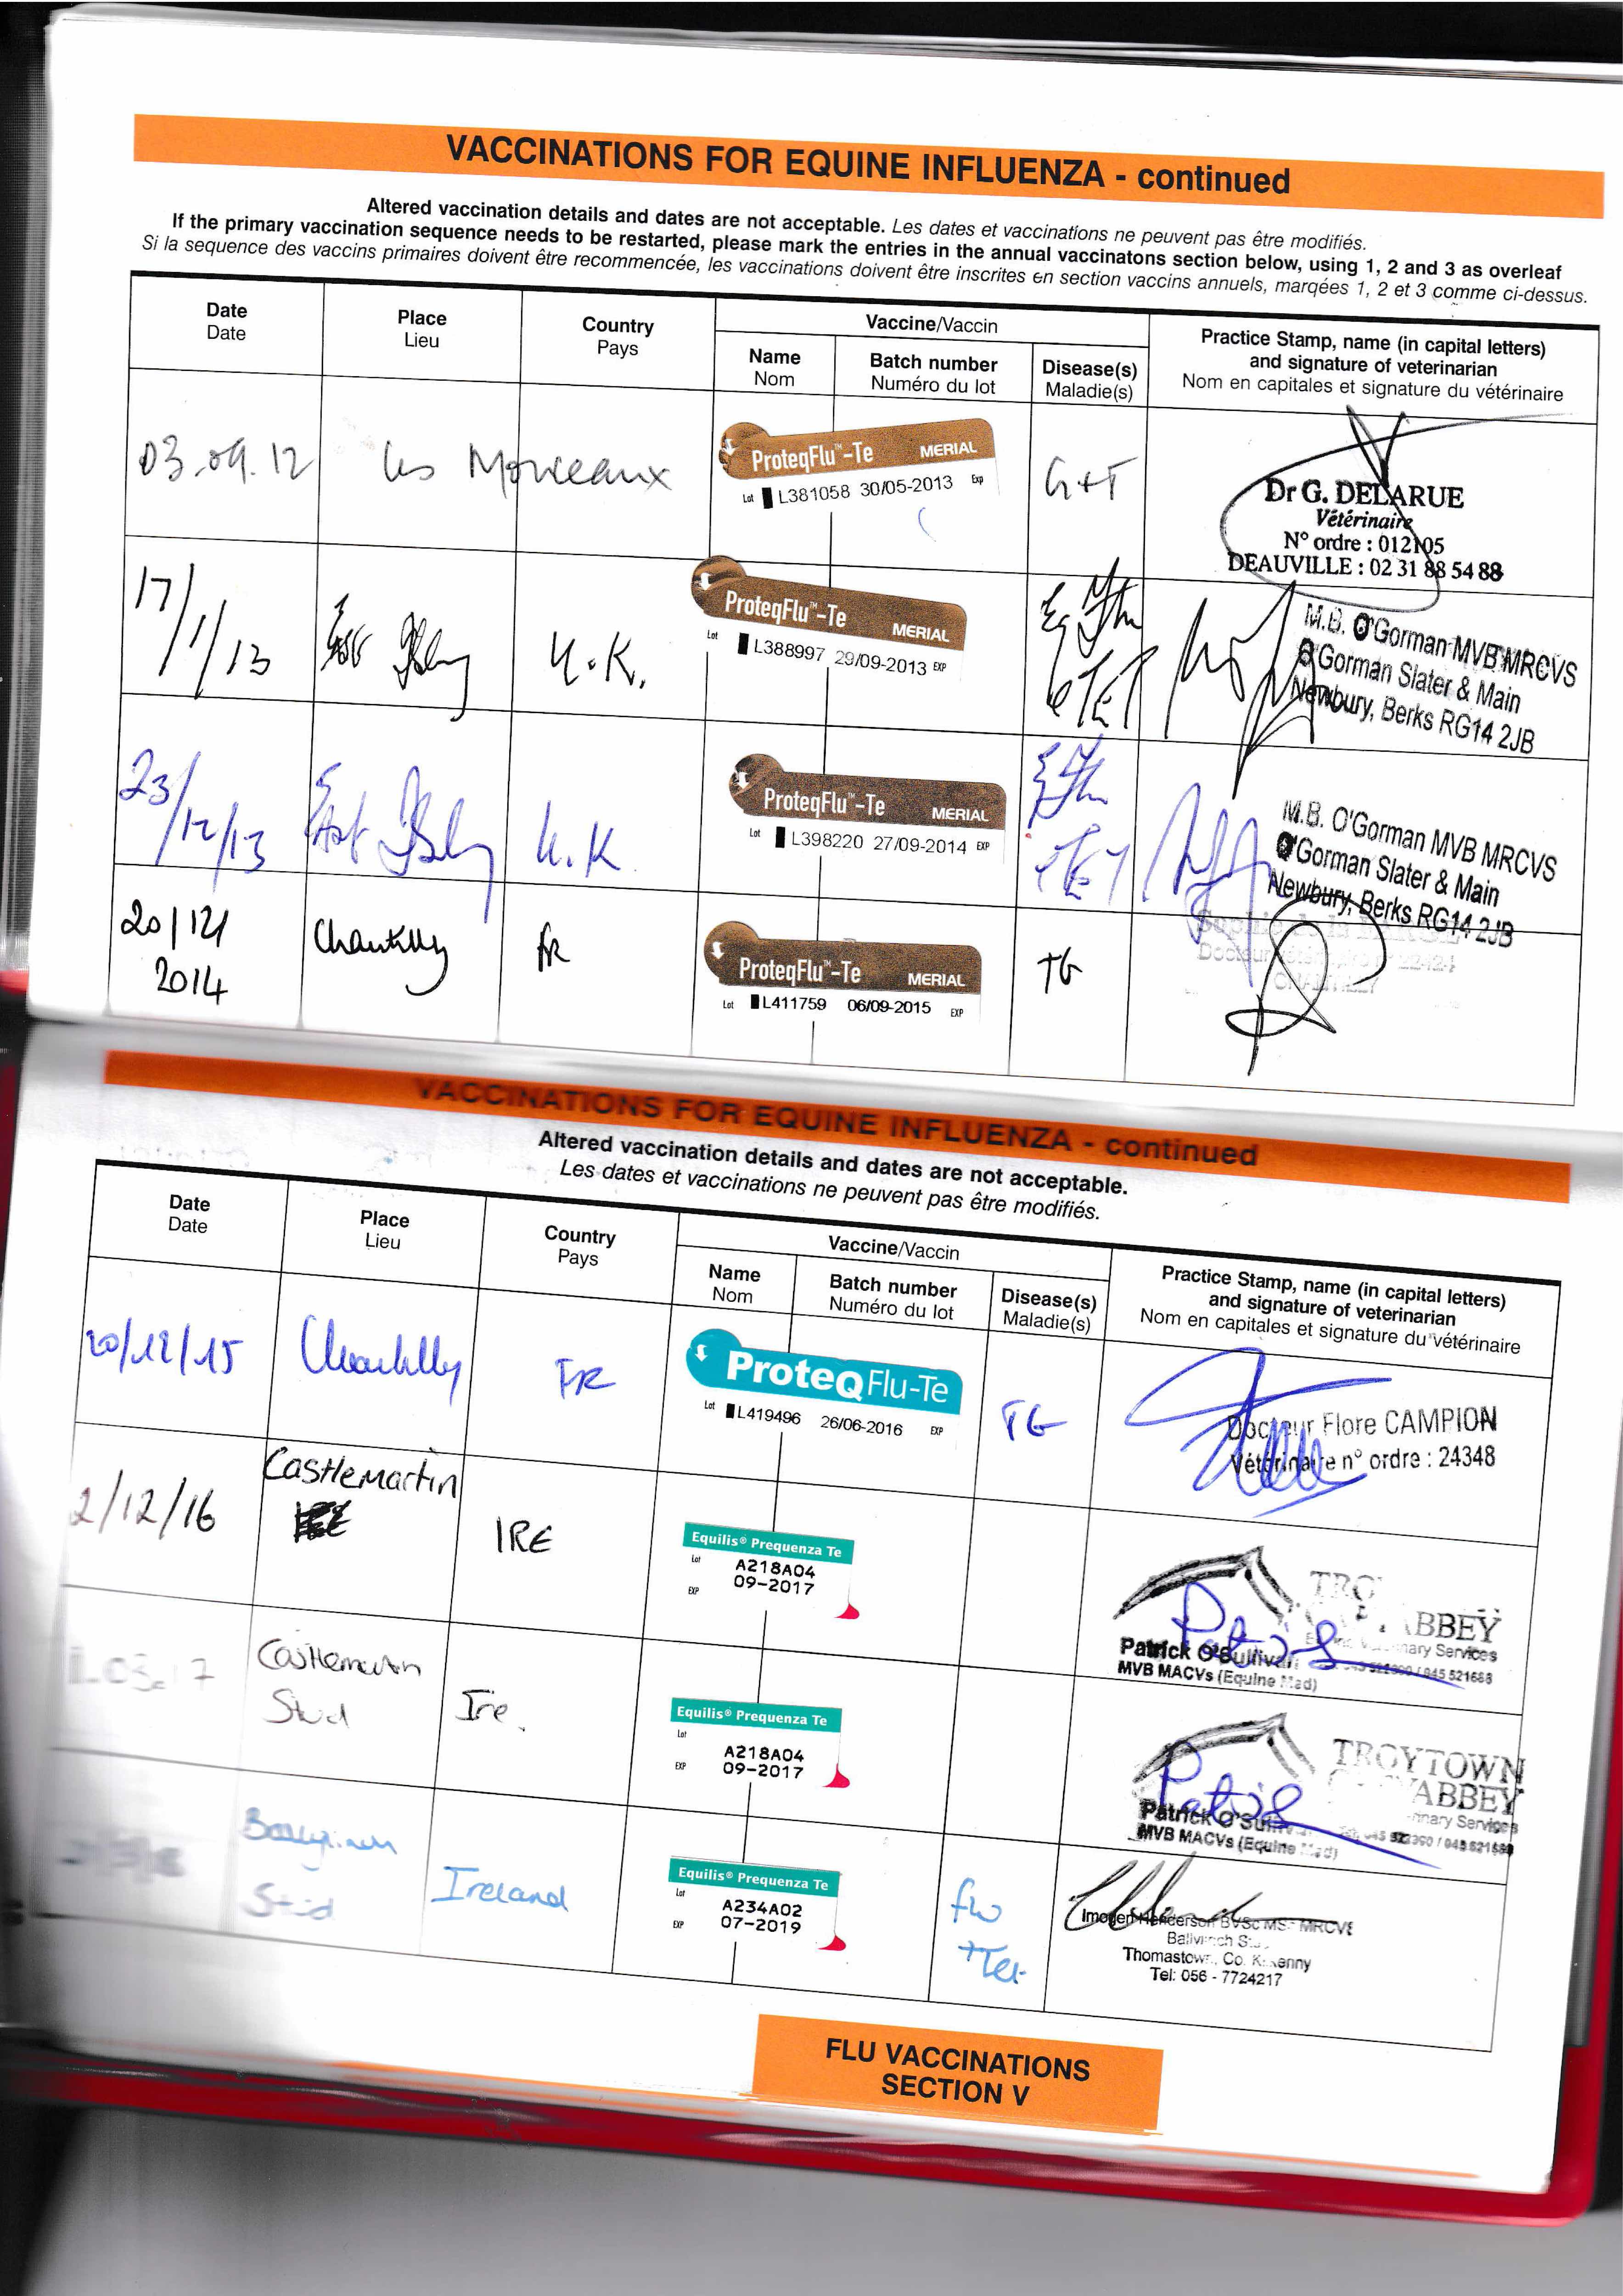 VACCINATIONS FOR EQUINE INFLUENZA - continued
Altered vaccination details and dates are not acceptable. Les dates et vaccinations ne peuvent pas être modifiés.
If the primary vaccination sequence needs to be restarted, please mark the entries in the annual vaccinatons section below, using 1, 2 and 3 as overleaf
Si la sequence des vaccins primaires doivent être recommencée, les vaccinations doivent être inscrites en section vaccins annuels, marqées 1, 2 et 3 comme ci-dessus.
Date Place Country Vaccine/Vaccin Practice Stamp, name (in capital letters)
Date Lieu Pays and signature of veterinarian
Name Batch number Disease(s) Nom en capitales et signature du vétérinaire
Nom Numéro du lot Maladie(s)
03.09.12 Les Monceaux ProteqFlu™-Te MERIAL G+T
Lot L381058 30/05-2013 Exp
Dr G. DELARUE
Vétérinaire
N° ordre : 012105
DEAUVILLE : 02 31 88 54 88
17/1/13 U.K. ProteqFlu™-Te MERIAL
Lot L388997 29/09-2013 EXP
M.B. O'Gorman MVB MRCVS
O'Gorman Slater & Main
Newbury, Berks RG14 2JB
23/12/13 East Ilsley U.K. ProteqFlu™-Te MERIAL
Lot L398220 27/09-2014 EXP
M.B. O'Gorman MVB MRCVS
O'Gorman Slater & Main
Newbury, Berks RG14 2JB
20/12/ Chantilly FR ProteqFlu™-Te MERIAL TG
2014 Lot L411759 06/09-2015 EXP
VACCINATIONS FOR EQUINE INFLUENZA - continued
Altered vaccination details and dates are not acceptable.
Les dates et vaccinations ne peuvent pas être modifiés.
Date Place Country Vaccine/Vaccin Practice Stamp, name (in capital letters)
Date Lieu Pays and signature of veterinarian
Name Batch number Disease(s) Nom en capitales et signature du vétérinaire
Nom Numéro du lot Maladie(s)
20/12/15 Chantilly FR ProteqFlu-Te TG
Lot L419496 26/06-2016 EXP
Docteur Flore CAMPION
Vétérinaire n° ordre : 24348
2/12/16 Castlemartin IRE Equilis® Prequenza Te
Lot A218A04
EXP 09-2017
ABBEY
Patrick O'Sullivan
MVB MACVs (Equine Med)
Castlemartin
Stud Ire. Equilis® Prequenza Te
Lot A218A04
EXP 09-2017
TROYTOWN
ABBEY
Patrick O'Sullivan
MVB MACVs (Equine Med)
Stud Ireland Equilis® Prequenza Te
Lot A234A02
EXP 07-2019
flu
+Tet
Imogen Henderson BVSc MRCVS
Thomastown, Co. Kilkenny
Tel: 056 - 7724217
FLU VACCINATIONS
SECTION V